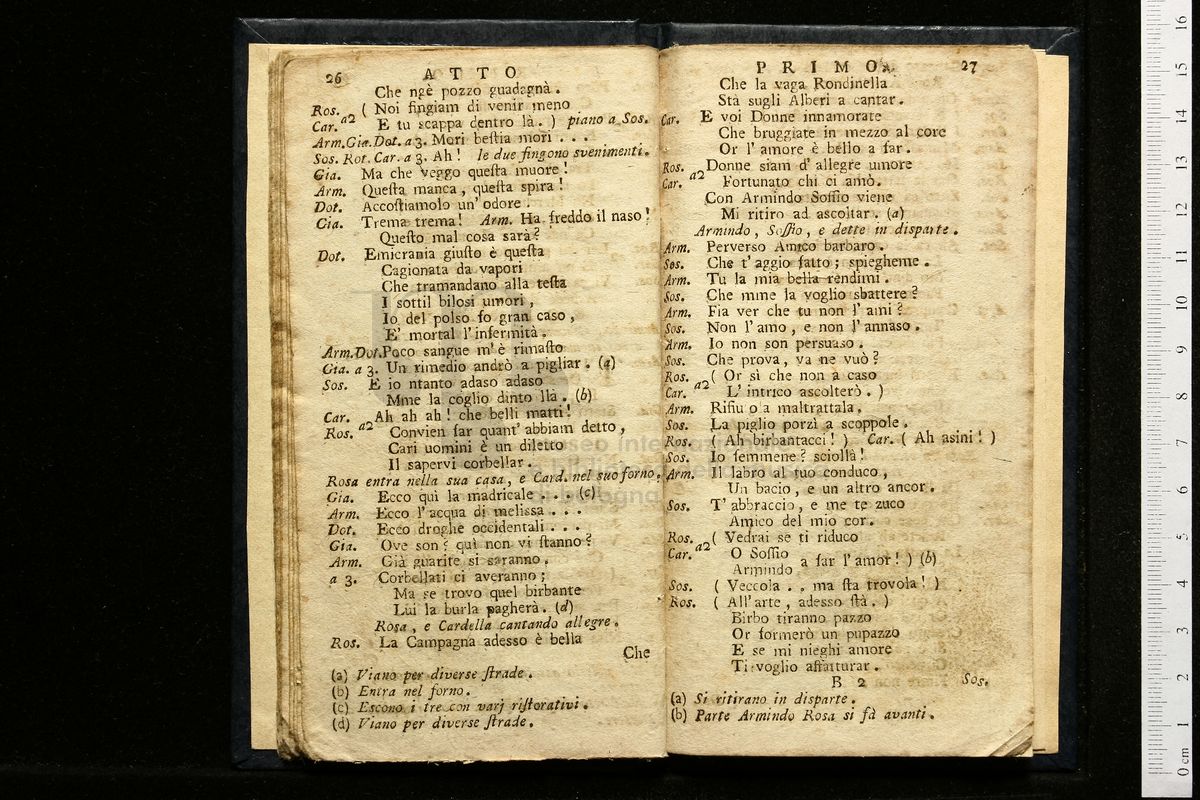 26 ATTO
Che ngè pozzo guadagnà.
Ros. ( Noi fingiam di venir meno
Car. a2 E tu scappa dentro là. ) piano a Sos.
Arm.Gia.Dot. a 3. Mori beſtia mori . . .
Sos. Rot. Car. a 3. Ah! le due fingono svenimenti.
Gia. Ma che veggo queſta muore!
Arm. Queſta manca, queſta spira!
Dot. Accoſtiamolo un' odore.
Gia. Trema trema! Arm. Ha freddo il naso!
Queſto mal cosa sarà?
Dot. Emicrania giuſto è queſta
Cagionata da vapori
Che tramandano alla teſta
I sottil bilosi umori,
Io del polso fo gran caso,
E' mortal l'infermità.
Arm.Dot. Poco sangue m'è rimaſto
Gia. a 3. Un rimedio andrò a pigliar. (a)
Sos. E io ntanto adaso adaso
Mme la coglio dinto llà. (b)
Car. Ah ah ah! che belli matti!
Ros. a2 Convien far quant' abbiam detto,
Cari uomini è un diletto
Il sapervi corbellar.
Rosa entra nella sua casa, e Card. nel suo forno.
Gia. Ecco quì la madricale . . . (c)
Arm. Ecco l'acqua di melissa . . .
Dot. Ecco droghe occidentali . . .
Gia. Ove son? quì non vi ſtanno?
Arm. Già guarite si saranno.
a 3. Corbellati ci averanno;
Ma se trovo quel birbante
Lui la burla pagherà. (d)
Rosa, e Cardella cantando allegre.
Ros. La Campagna adesso è bella
Che
(a) Viano per diverse ſtrade.
(b) Entra nel forno.
(c) Escono i tre con varj riſtorativi.
(d) Viano per diverse ſtrade.
PRIMO. 27
Che la vaga Rondinella
Stà sugli Alberi a cantar.
Car. E voi Donne innamorate
Che bruggiate in mezzo al core
Or l' amore è bello a far.
Ros. Donne siam d' allegre umore
Car. a2 Fortunato chi ci amò.
Con Armindo Soffio viene
Mi ritiro ad ascoltar. (a)
Armindo, Soffio, e dette in disparte.
Arm. Perverso Amico barbaro.
Sos. Che t' aggio fatto; spiegheme.
Arm. Tu la mia bella rendimi.
Sos. Che mme la voglio sbattere?
Arm. Fia ver che tu non l' ami?
Sos. Non l' amo, e non l' annaso.
Arm. Io non son persuaso.
Sos. Che prova, va ne vuò?
Ros. ( Or sì che non a caso
Car. a2 L' intrico ascolterò. )
Arm. Rifiu o a maltrattala,
Sos. La piglio porzì a scoppole.
Ros. ( Ah birbantacci! ) Car. ( Ah asini! )
Sos. Io femmene? sciollà!
Arm. Il labro al tuo conduco,
Un bacio, e un altro ancor.
Sos. T' abbraccio, e me te zuco
Amico del mio cor.
Ros. ( Vedrai se ti riduco
Car. a2 O Soffio
Armindo a far l' amor! ) (b)
Sos. ( Veccola . . ma ſta trovola! )
Ros. ( All' arte, adesso ſtà. )
Birbo tiranno pazzo
Or formerò un pupazzo
E se mi nieghi amore
Ti voglio affatturar.
B 2 Sos.
(a) Si ritirano in disparte.
(b) Parte Armindo Rosa si fà avanti.
0 cm 1 2 3 4 5 6 7 8 9 10 11 12 13 14 15 16